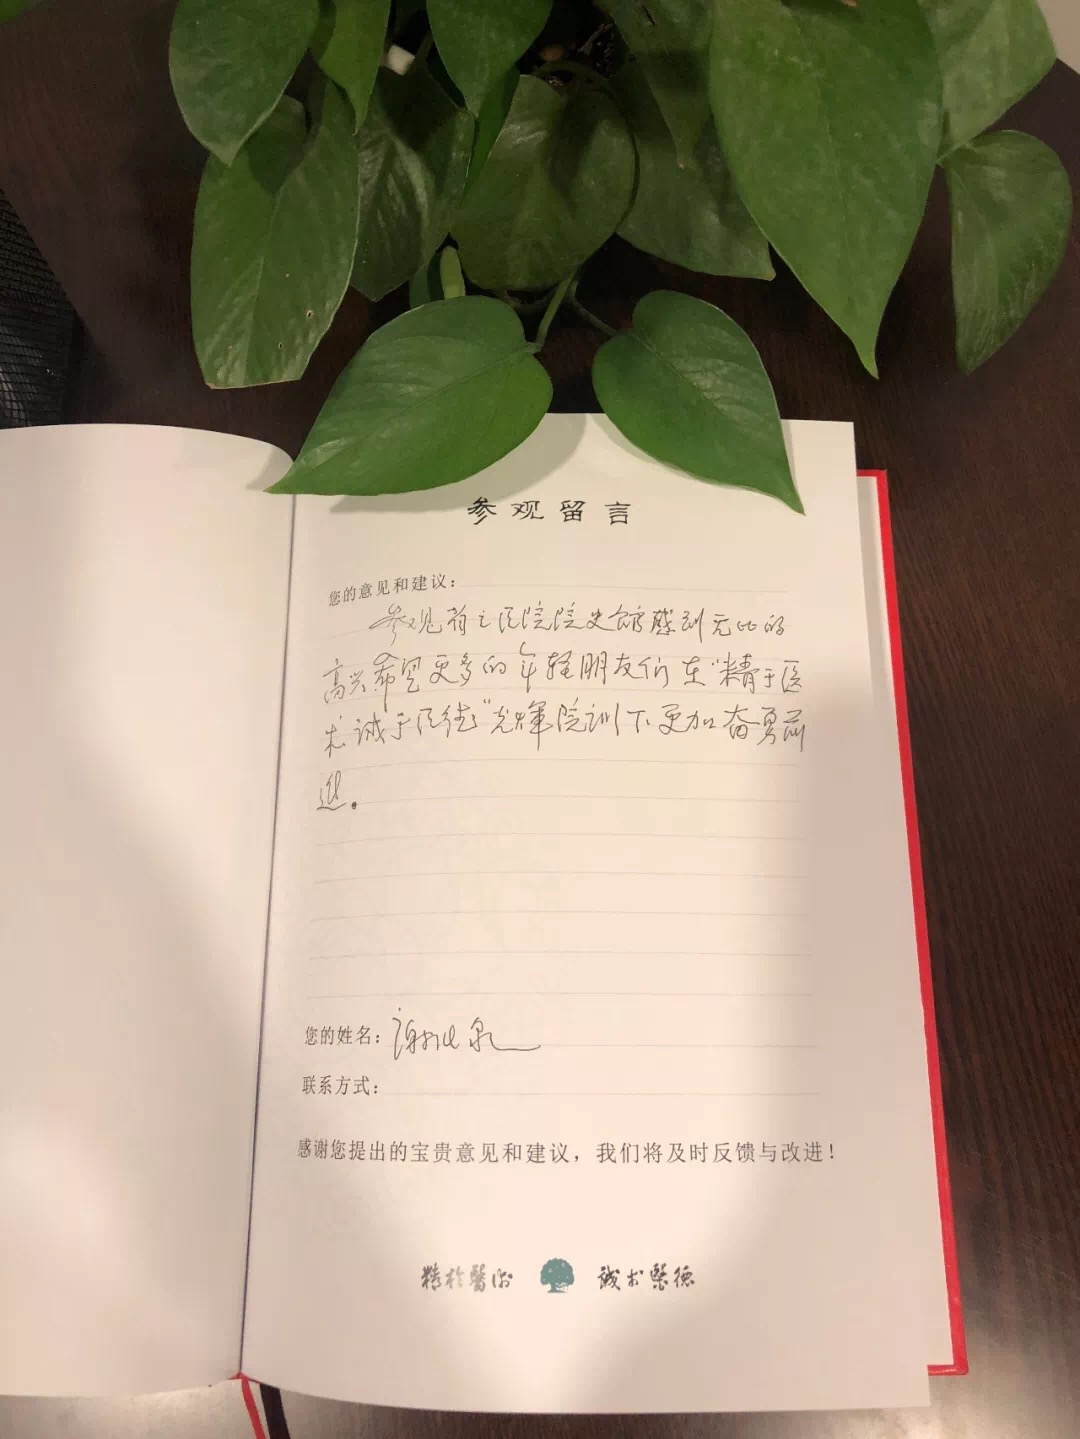 参观留言
您的意见和建议：
参观前之医院院史馆感到无比的
高兴希望更多的年轻朋友们在“精于医
术诚于医德”光辉院训下更加奋勇前
进。
您的姓名：谢
联系方式：
感谢您提出的宝贵意见和建议，我们将及时反馈与改进！
精於醫術 誠於醫德